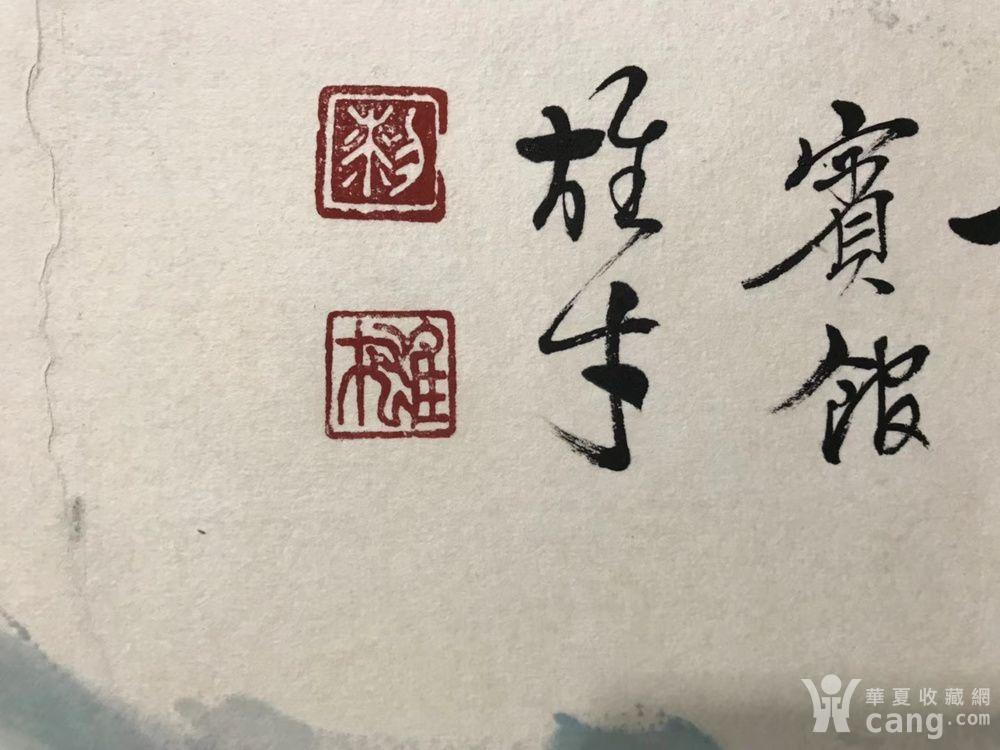 賓館
雄才
華夏收藏網
cang.com